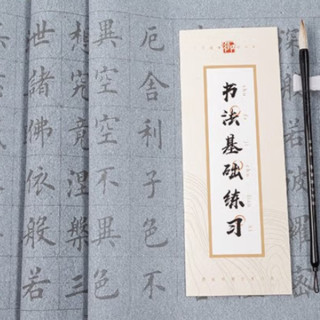 御
书法基础练习
深般
若
波
羅
厄舍利子色不
異空空不異色
想究竟涅槃三
世緒佛依般若